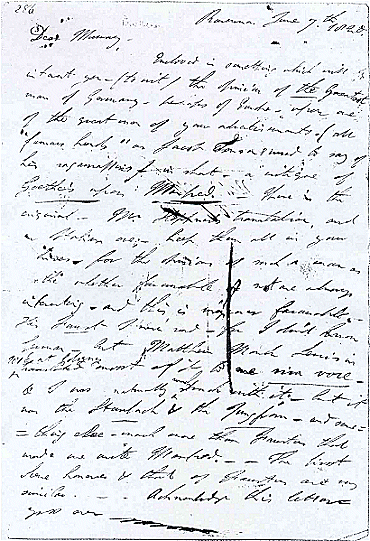 286
Ravenna June 7th 1820
Dear Murray,
Enclosed is something which will
interest you - (to wit) the opinion of the Greatest
man of Germany - perhaps of Europe - upon one
of the great men of your advertisements - (all
"famous hands" as Jacob Tonson used to say of
his ragamuffins) - in short - a critique of
Goethe's upon Manfred. There is the
original - Mr translation, and
an Italian one - keep them all in your
archives - for the opinions of such a man as
whether favourable or not are always
interesting - and this is favourable -
His Faust I never read - for I don't know
German - but Matthew Monk Lewis in
1816 at Coligny
translated most of it to me viva voce -
& I was naturally much struck with it; - but it
was the Staubach & the Jungfrau - and some-
-thing else - much more than Faustus that
made me write Manfred. - - The first
Scene however & that of Faustus are very
similar. - - Acknowledge this letter.
yrs ever